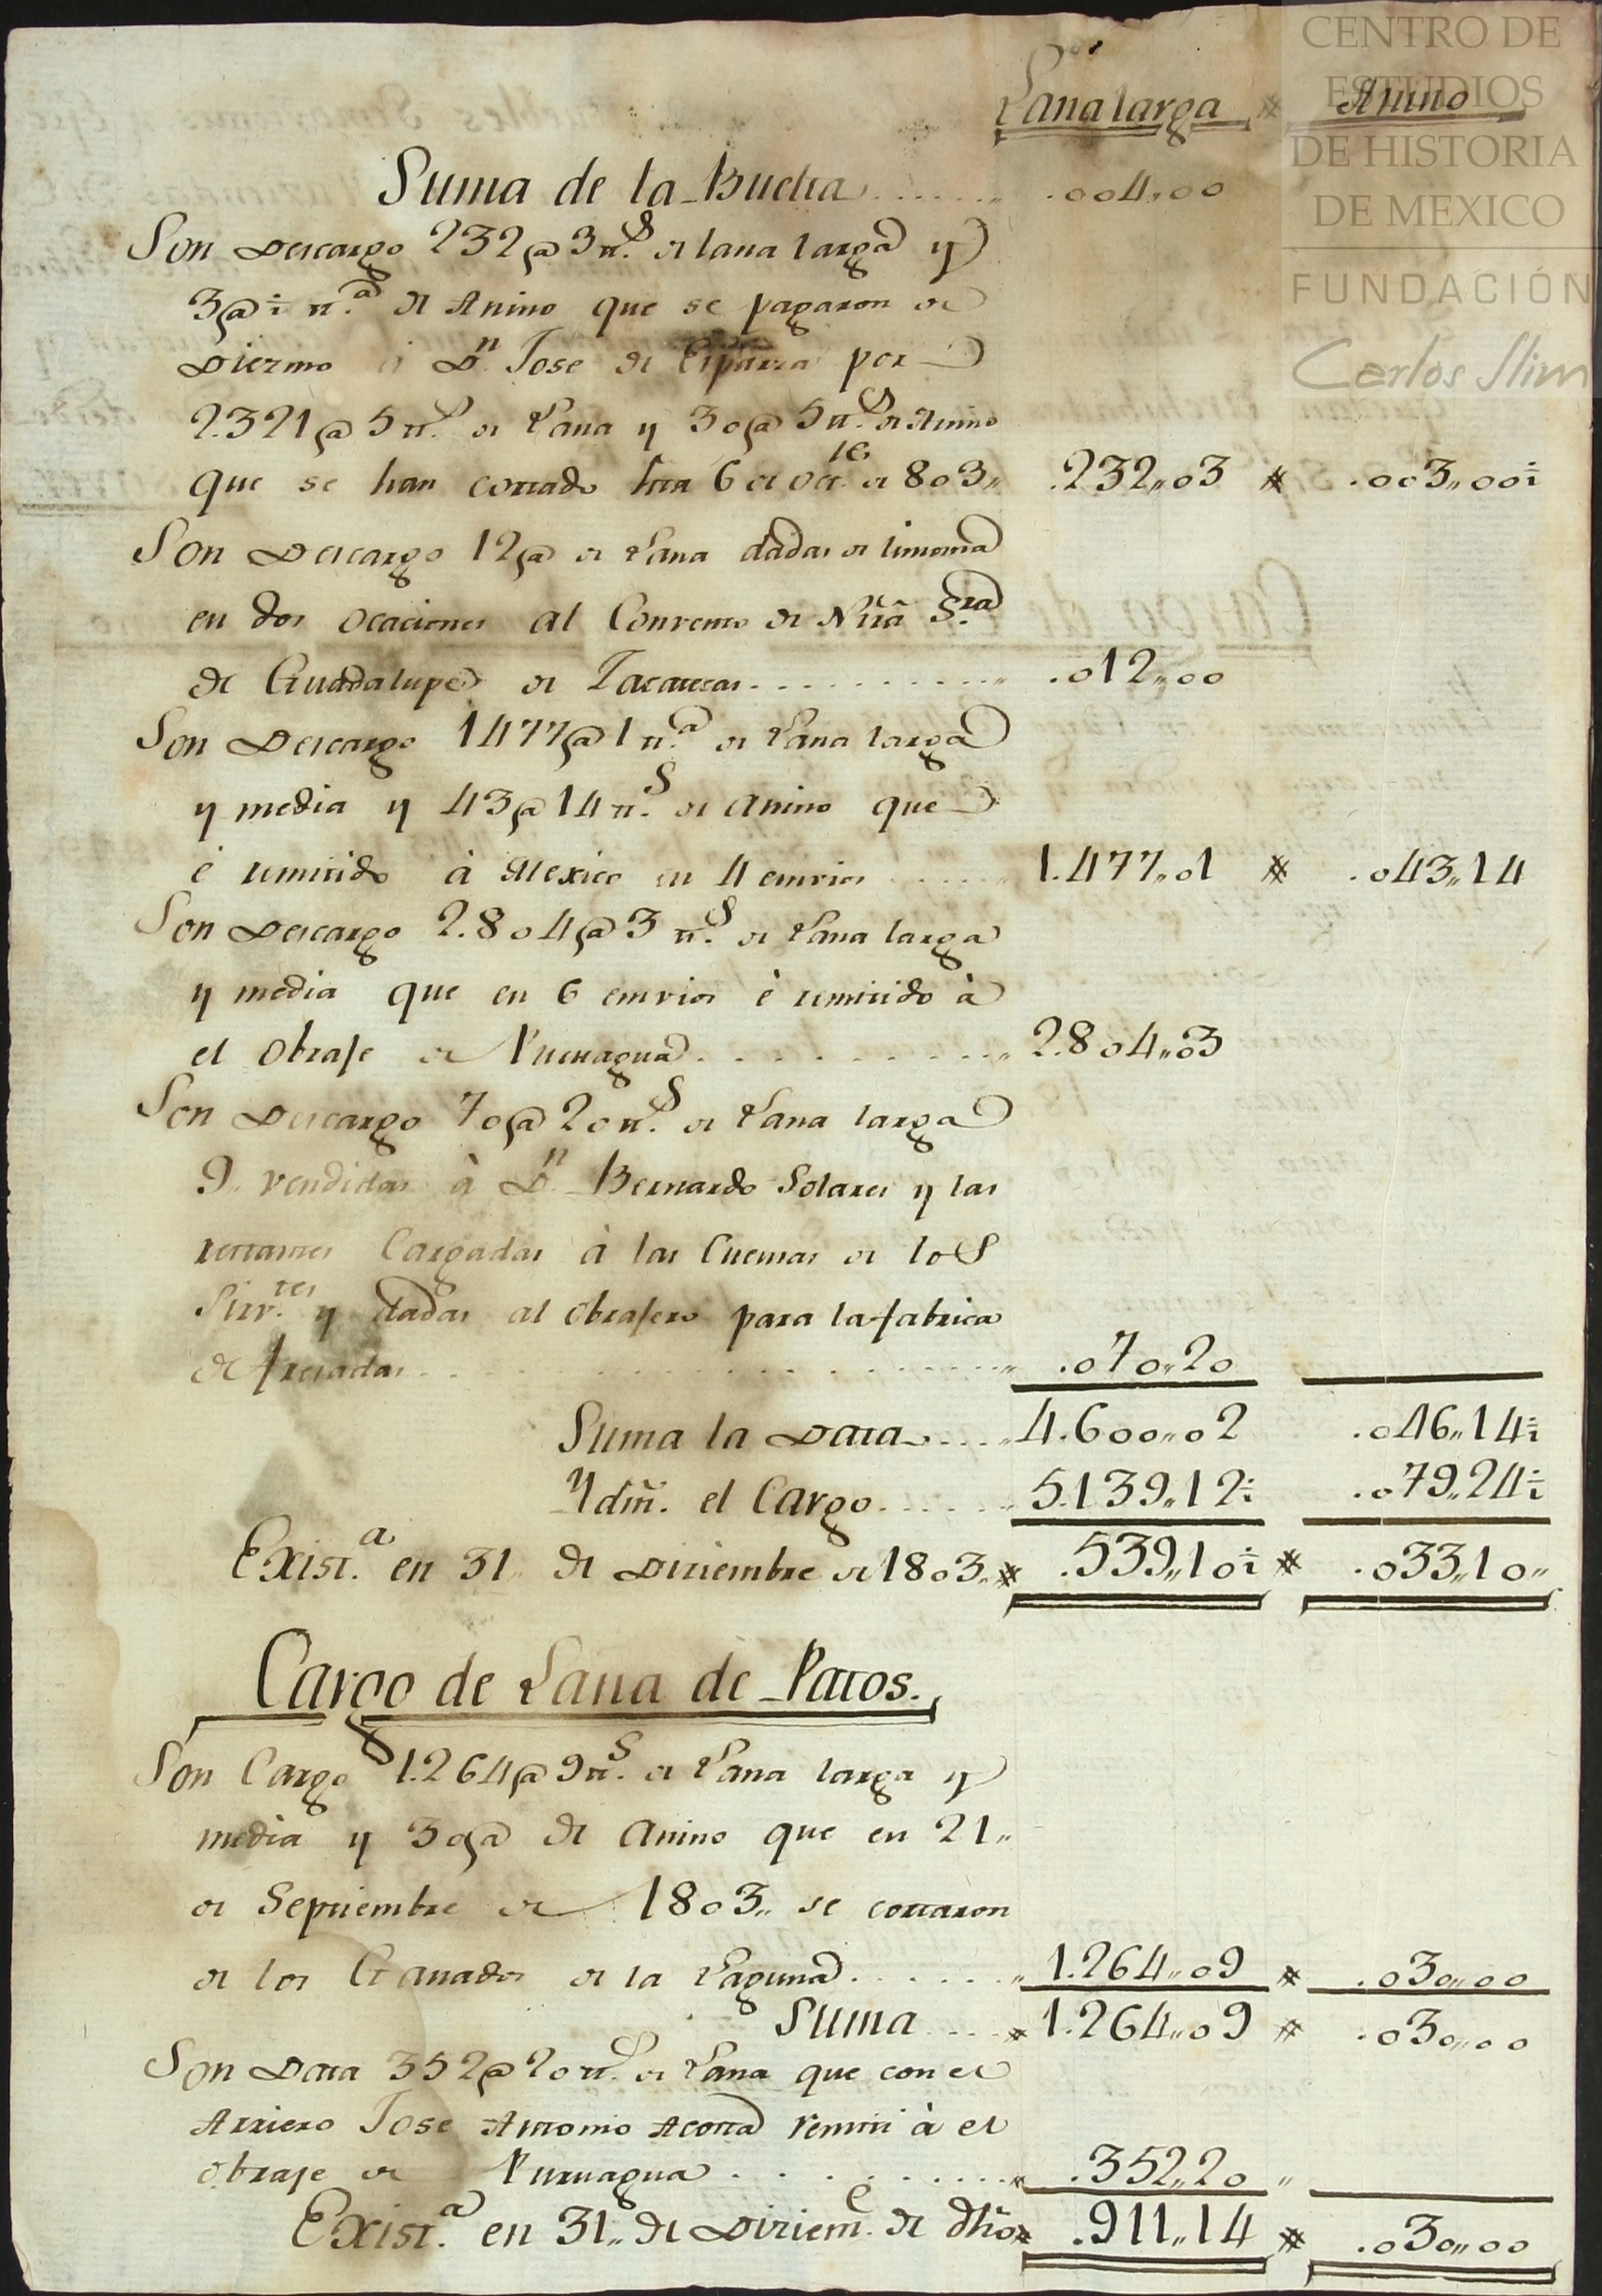 CENTRO DE
ESTUDIOS
DE HISTORIA
DE MEXICO
FUNDACIÓN
Carlos Slim
Lana larga # Anino
Suma de la Buelta ....... .004,,00
Son Descargo 232@ 3 tt.s de lana larga y
3@ ÷ tt.a de Anino que se pagaron de
Diezmo à D.n Jose de Esparza por
2.321@ 5 tt.s de Lana y 30@ 5 tt.s de Anino
que se han cortado hta 6 de Oct.re de 803,, .232,,03 # .003,,00÷
Son Descargo 12@ de Lana dadas de limosna
en dos ocaciones al Convento de Ntrã S.ra
de Guadalupe de Zacatecas.......... .012,,00
Son Descargo 1477@ 1 tt.a de Lana larga
y media y 43@ 14 tt.s de Anino que
è remitido à Mexico en 4 emvios ..... 1.477,,01 # .043,,14
Son Descargo 2.804@ 3 tt.s de Lana larga
y media que en 6 emvios è remitido à
el Obraje de Puruagua........... 2.804,,03
Son Descargo 70@ 20 tt.s de Lana larga
9,, vendidas à D.n Bernardo Solares y las
restantes Cargadas à las Cuentas de los
Sirv.tes y dadas al obrajero para la fabrica
de fresadas.................. .070,,20
Suma la Data.... 4.600,,02 .046,,14÷
Ydm̃. el Cargo..... 5.139,,12÷ .079,,24÷
Exist.a en 31,, de Diziembre de 1803,,# .539,,10÷ # .033,,10,,
Cargo de Lana de Patos.,
Son Cargo 1.264@ 9 tt.s de Lana larga y
media y 30@ de Anino que en 21,,
de Septiembre de 1803,, se cortaron
de los Ganados de la Laguna....... 1.264,,09 # .030,,00
Suma....# 1.264,,09 # .030,,00
Son Data 352@ 20 tt.s de Lana que con el
Arriero Jose Antonio Acosta remiti à el
obraje de Puruagua .......... .352,,20 ,,
Exist.a en 31,, de Diziem.e de dho# .911,,14 # .030,,00